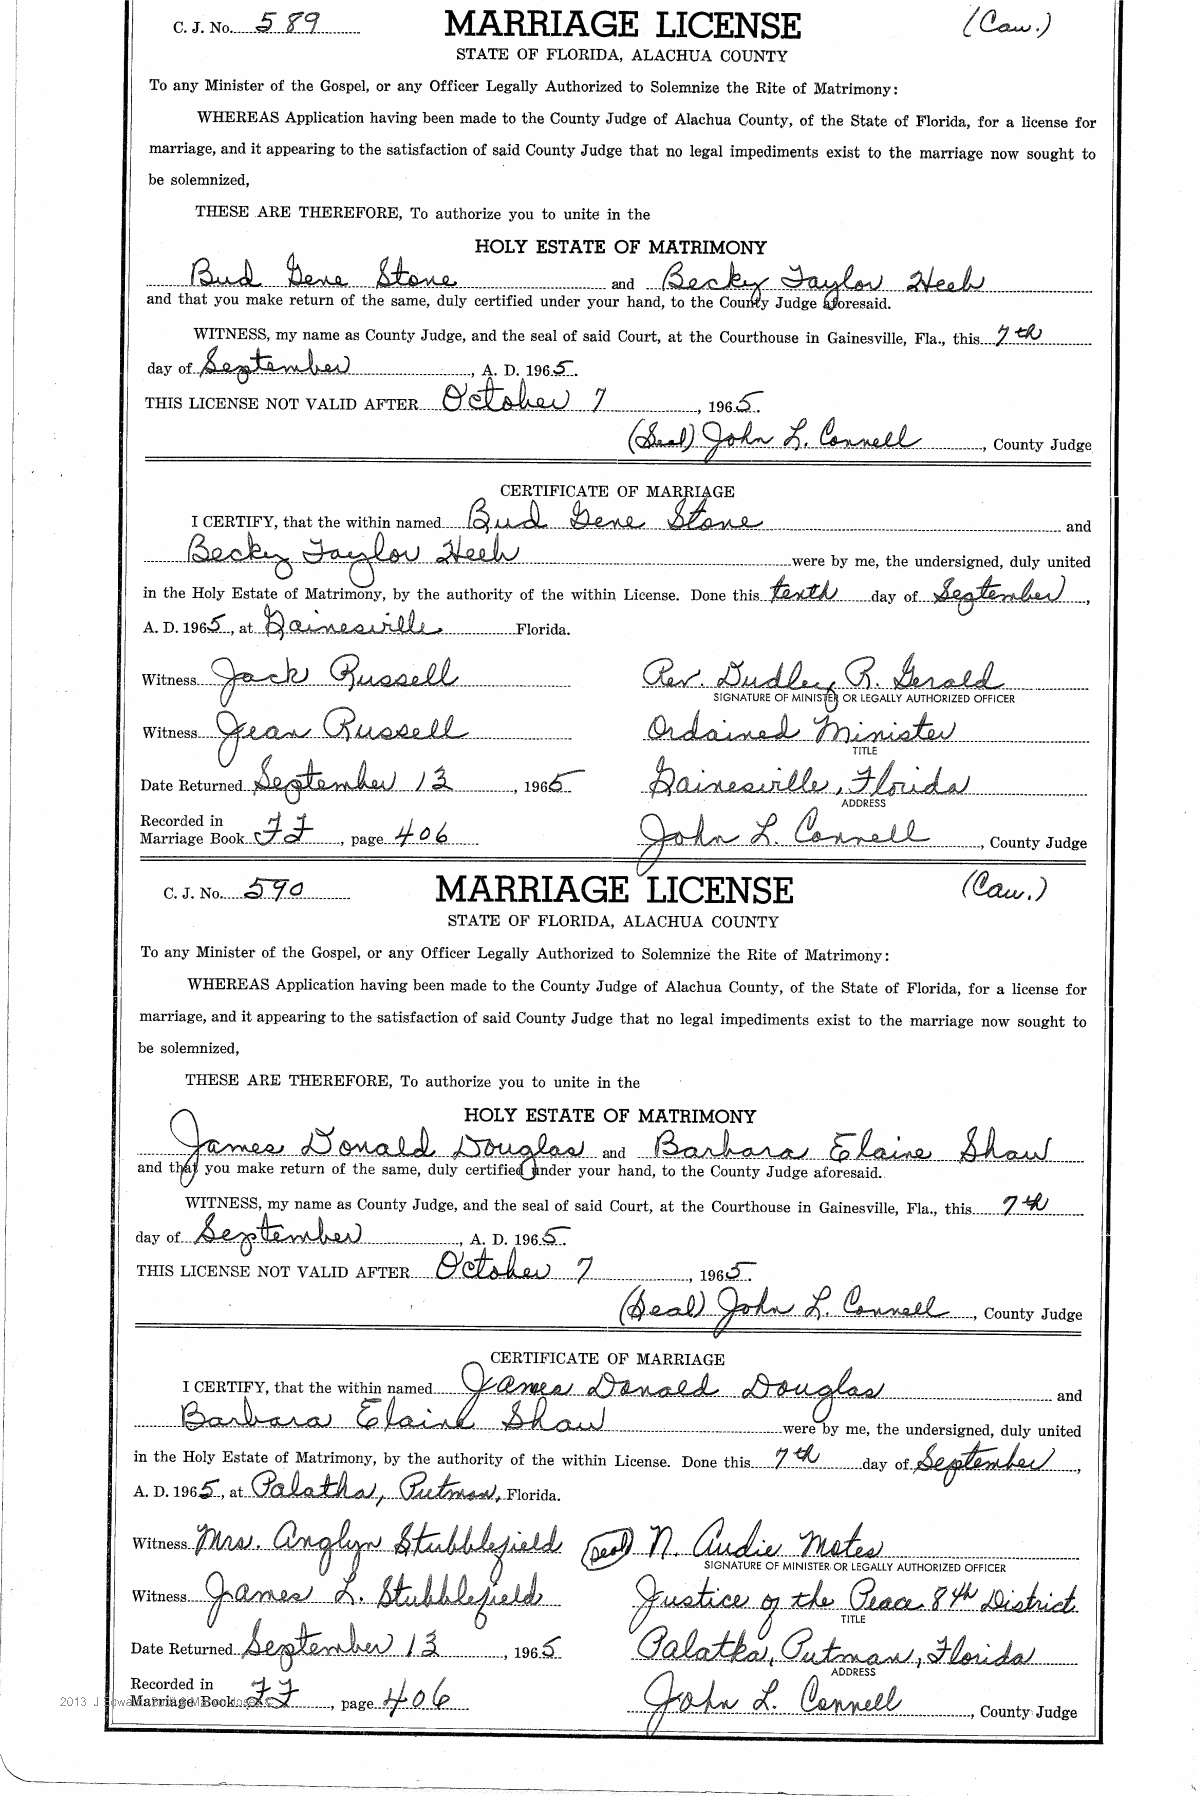 C. J. No. 589 MARRIAGE LICENSE (Cau.)
STATE OF FLORIDA, ALACHUA COUNTY
To any Minister of the Gospel, or any Officer Legally Authorized to Solemnize the Rite of Matrimony:
WHEREAS Application having been made to the County Judge of Alachua County, of the State of Florida, for a license for
marriage, and it appearing to the satisfaction of said County Judge that no legal impediments exist to the marriage now sought to
be solemnized,
THESE ARE THEREFORE, To authorize you to unite in the
HOLY ESTATE OF MATRIMONY
Bud Gene Stone and Becky Taylor Heeb
and that you make return of the same, duly certified under your hand, to the County Judge aforesaid.
WITNESS, my name as County Judge, and the seal of said Court, at the Courthouse in Gainesville, Fla., this 7th
day of September, A. D. 1965.
THIS LICENSE NOT VALID AFTER October 7, 1965.
(Seal) John L. Connell, County Judge
CERTIFICATE OF MARRIAGE
I CERTIFY, that the within named Bud Gene Stone and
Becky Taylor Heeb were by me, the undersigned, duly united
in the Holy Estate of Matrimony, by the authority of the within License. Done this tenth day of September,
A. D. 1965, at Gainesville Florida.
Witness Jack Russell Rev. Dudley R. Gerald
SIGNATURE OF MINISTER OR LEGALLY AUTHORIZED OFFICER
Witness Jean Russell Ordained Minister
TITLE
Date Returned September 13, 1965 Gainesville, Florida
ADDRESS
Recorded in
Marriage Book FF, page 406 John L. Connell, County Judge
C. J. No. 590 MARRIAGE LICENSE (Cau.)
STATE OF FLORIDA, ALACHUA COUNTY
To any Minister of the Gospel, or any Officer Legally Authorized to Solemnize the Rite of Matrimony:
WHEREAS Application having been made to the County Judge of Alachua County, of the State of Florida, for a license for
marriage, and it appearing to the satisfaction of said County Judge that no legal impediments exist to the marriage now sought to
be solemnized,
THESE ARE THEREFORE, To authorize you to unite in the
HOLY ESTATE OF MATRIMONY
James Donald Douglas and Barbara Elaine Shaw
and that you make return of the same, duly certified under your hand, to the County Judge aforesaid.
WITNESS, my name as County Judge, and the seal of said Court, at the Courthouse in Gainesville, Fla., this 7th
day of September, A. D. 1965.
THIS LICENSE NOT VALID AFTER October 7, 1965.
(Seal) John L. Connell, County Judge
CERTIFICATE OF MARRIAGE
I CERTIFY, that the within named James Donald Douglas and
Barbara Elaine Shaw were by me, the undersigned, duly united
in the Holy Estate of Matrimony, by the authority of the within License. Done this 7th day of September,
A. D. 1965, at Palatka, Putman, Florida.
Witness Mrs. Anglyn Stubblefield (Seal) N. Audie Motes
SIGNATURE OF MINISTER OR LEGALLY AUTHORIZED OFFICER
Witness James L. Stubblefield Justice of the Peace 8th District
TITLE
Date Returned September 13, 1965 Palatka, Putman, Florida
ADDRESS
Recorded in
2013 Marriage Book FF, page 406 John L. Connell, County Judge